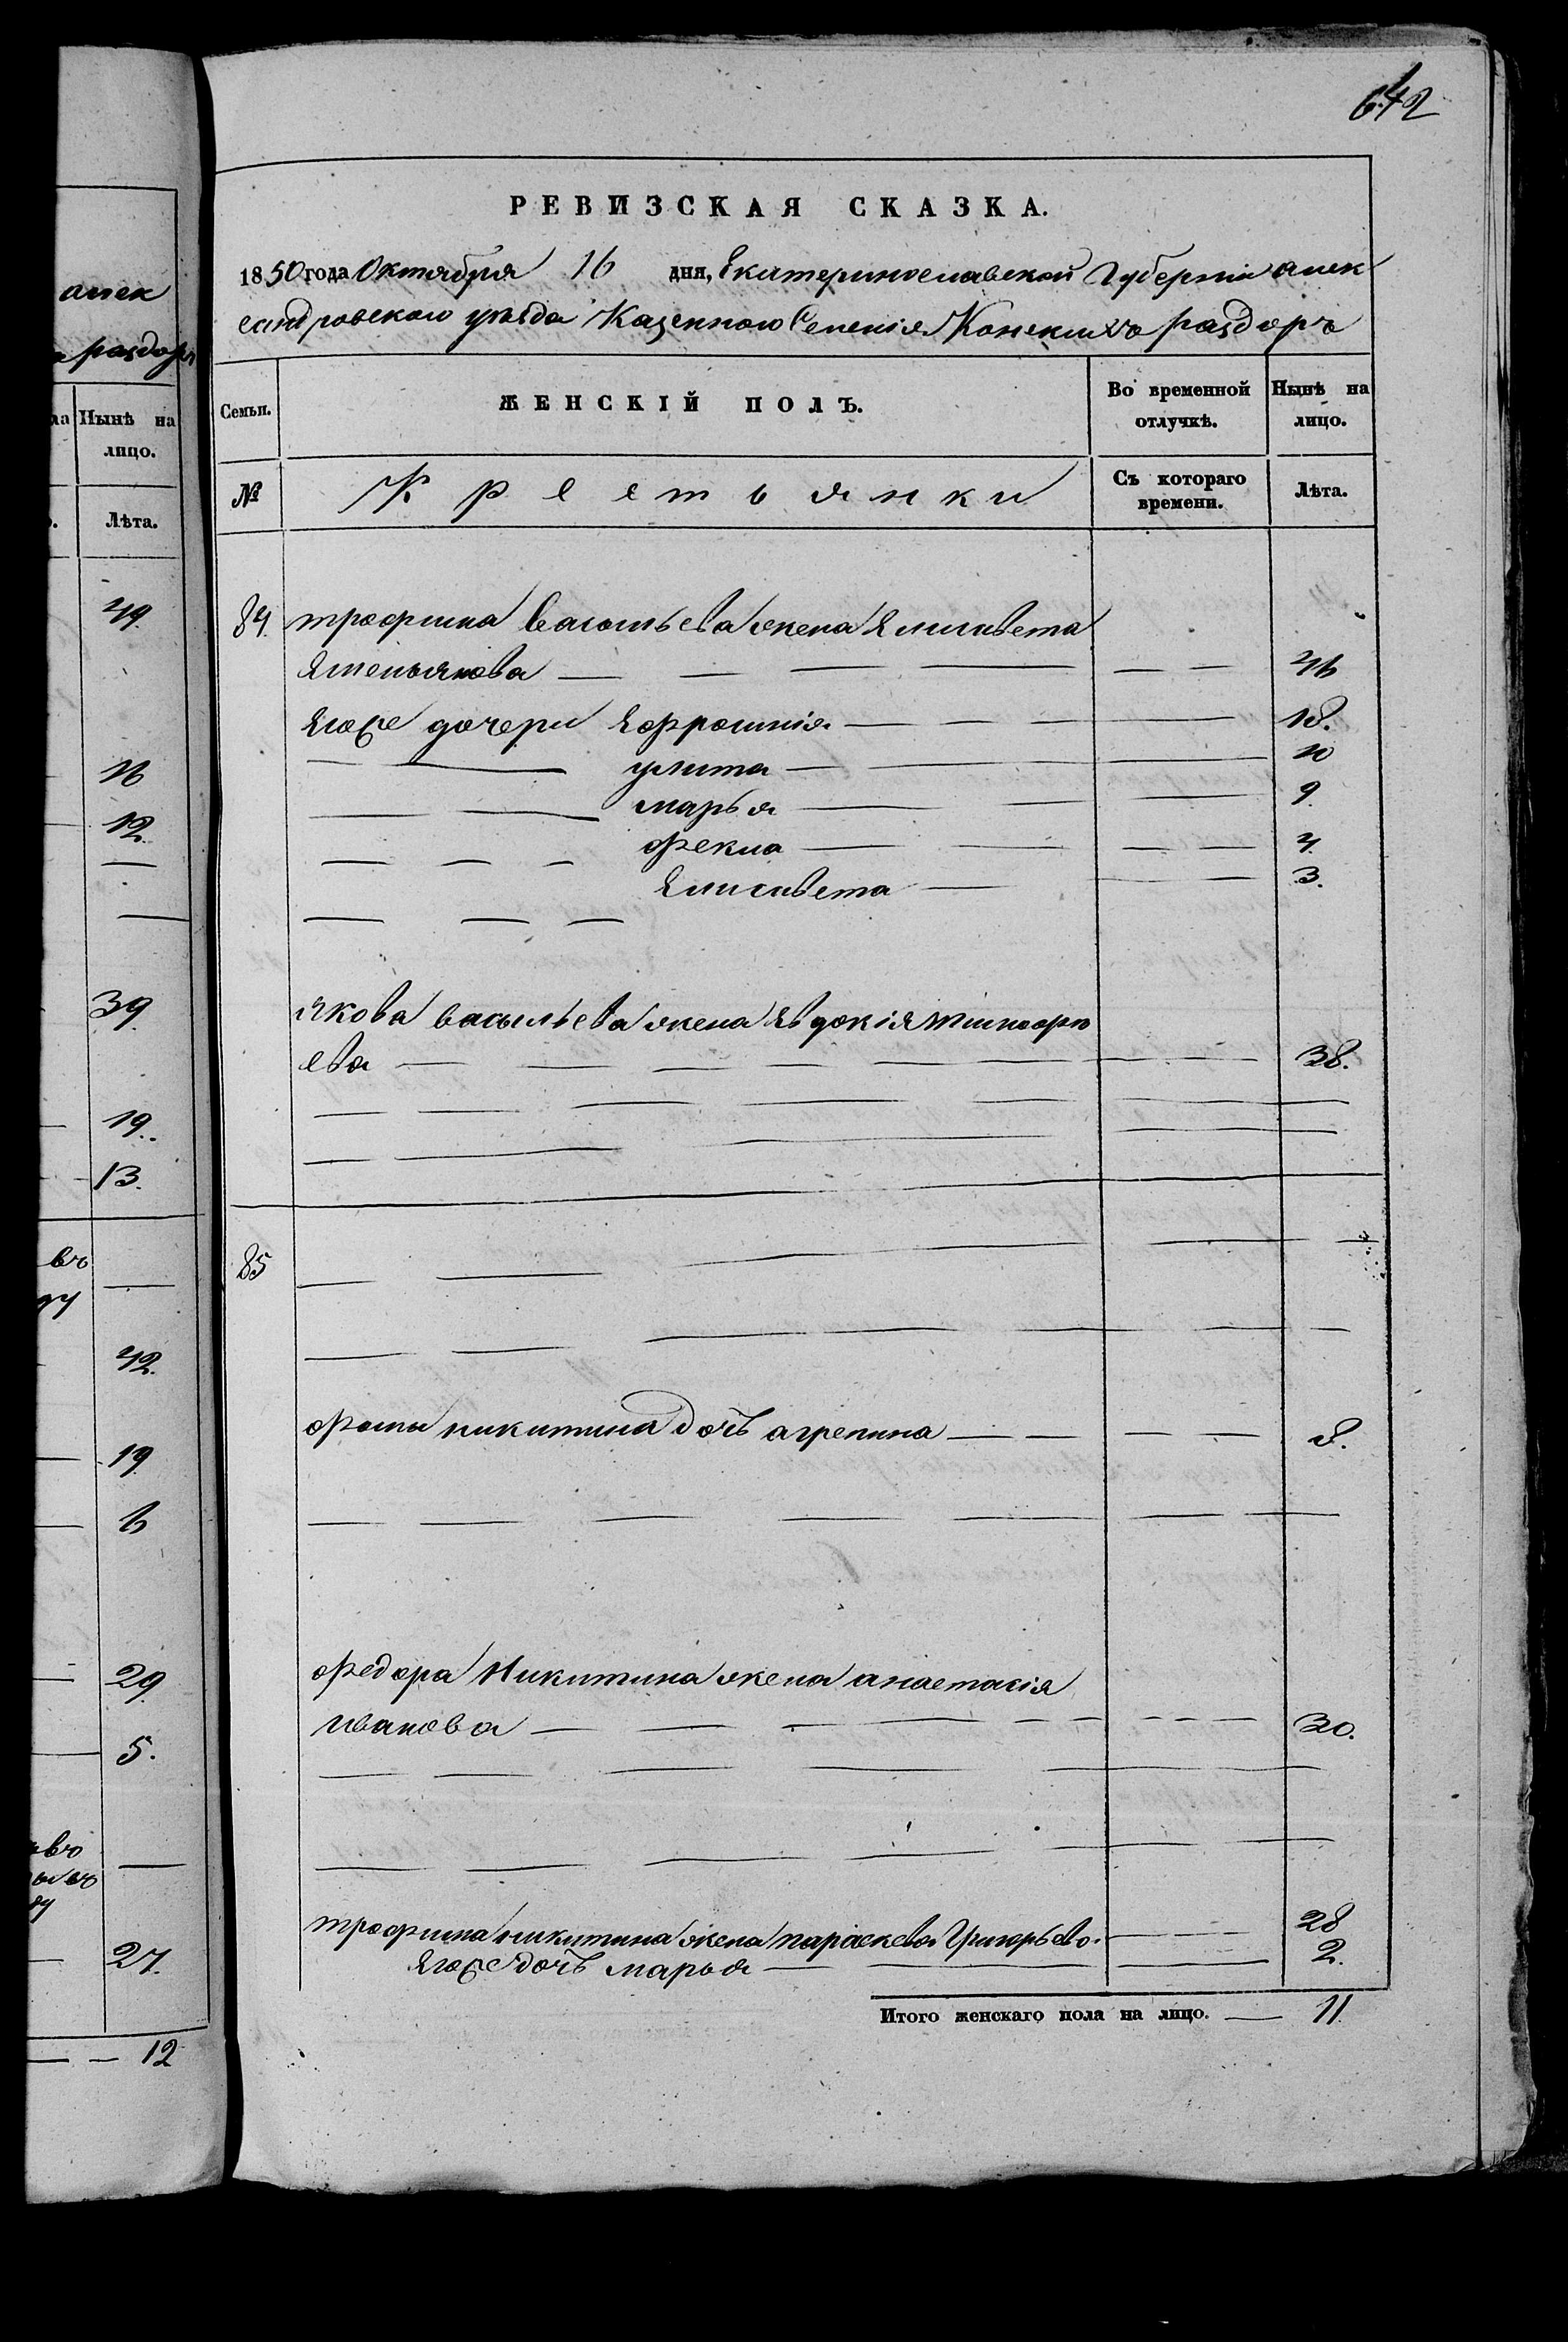 642
РЕВИЗСКАЯ СКАЗКА.
1850 года Октября 16 дня, Екатеринославской Губерніи алек
сандровскаго уѣзда Казеннаго Селенія Конскихъ раздоръ
Семьи.
ЖЕНСКІЙ ПОЛЪ.
Во временной отлучкѣ.
Нынѣ на лицо.
№
Крестьянки
Съ котораго времени.
Лѣта.
84. трофима васильева жена Елисавета
Емельянова 46
Егоже дочери Ефросинія 18.
улита 10
марья 9.
фекла 4.
Елисавета 3.
якова васильева жена Евдокія
ева 38.
85
фомы никитина дочь агрепина 8.
федора Никитина жена анастасія
иванова 30.
трофима никитина жена параскева Григорьева 28
Егоже дочь марья 2.
Итого женскаго пола на лицо. 11.
алек
раздоръ
ла
Нынѣ на лицо.
Лѣта.
49.
16
12.
39.
19.
13.
въ
ду
42.
19.
6
29.
5.
27.
12